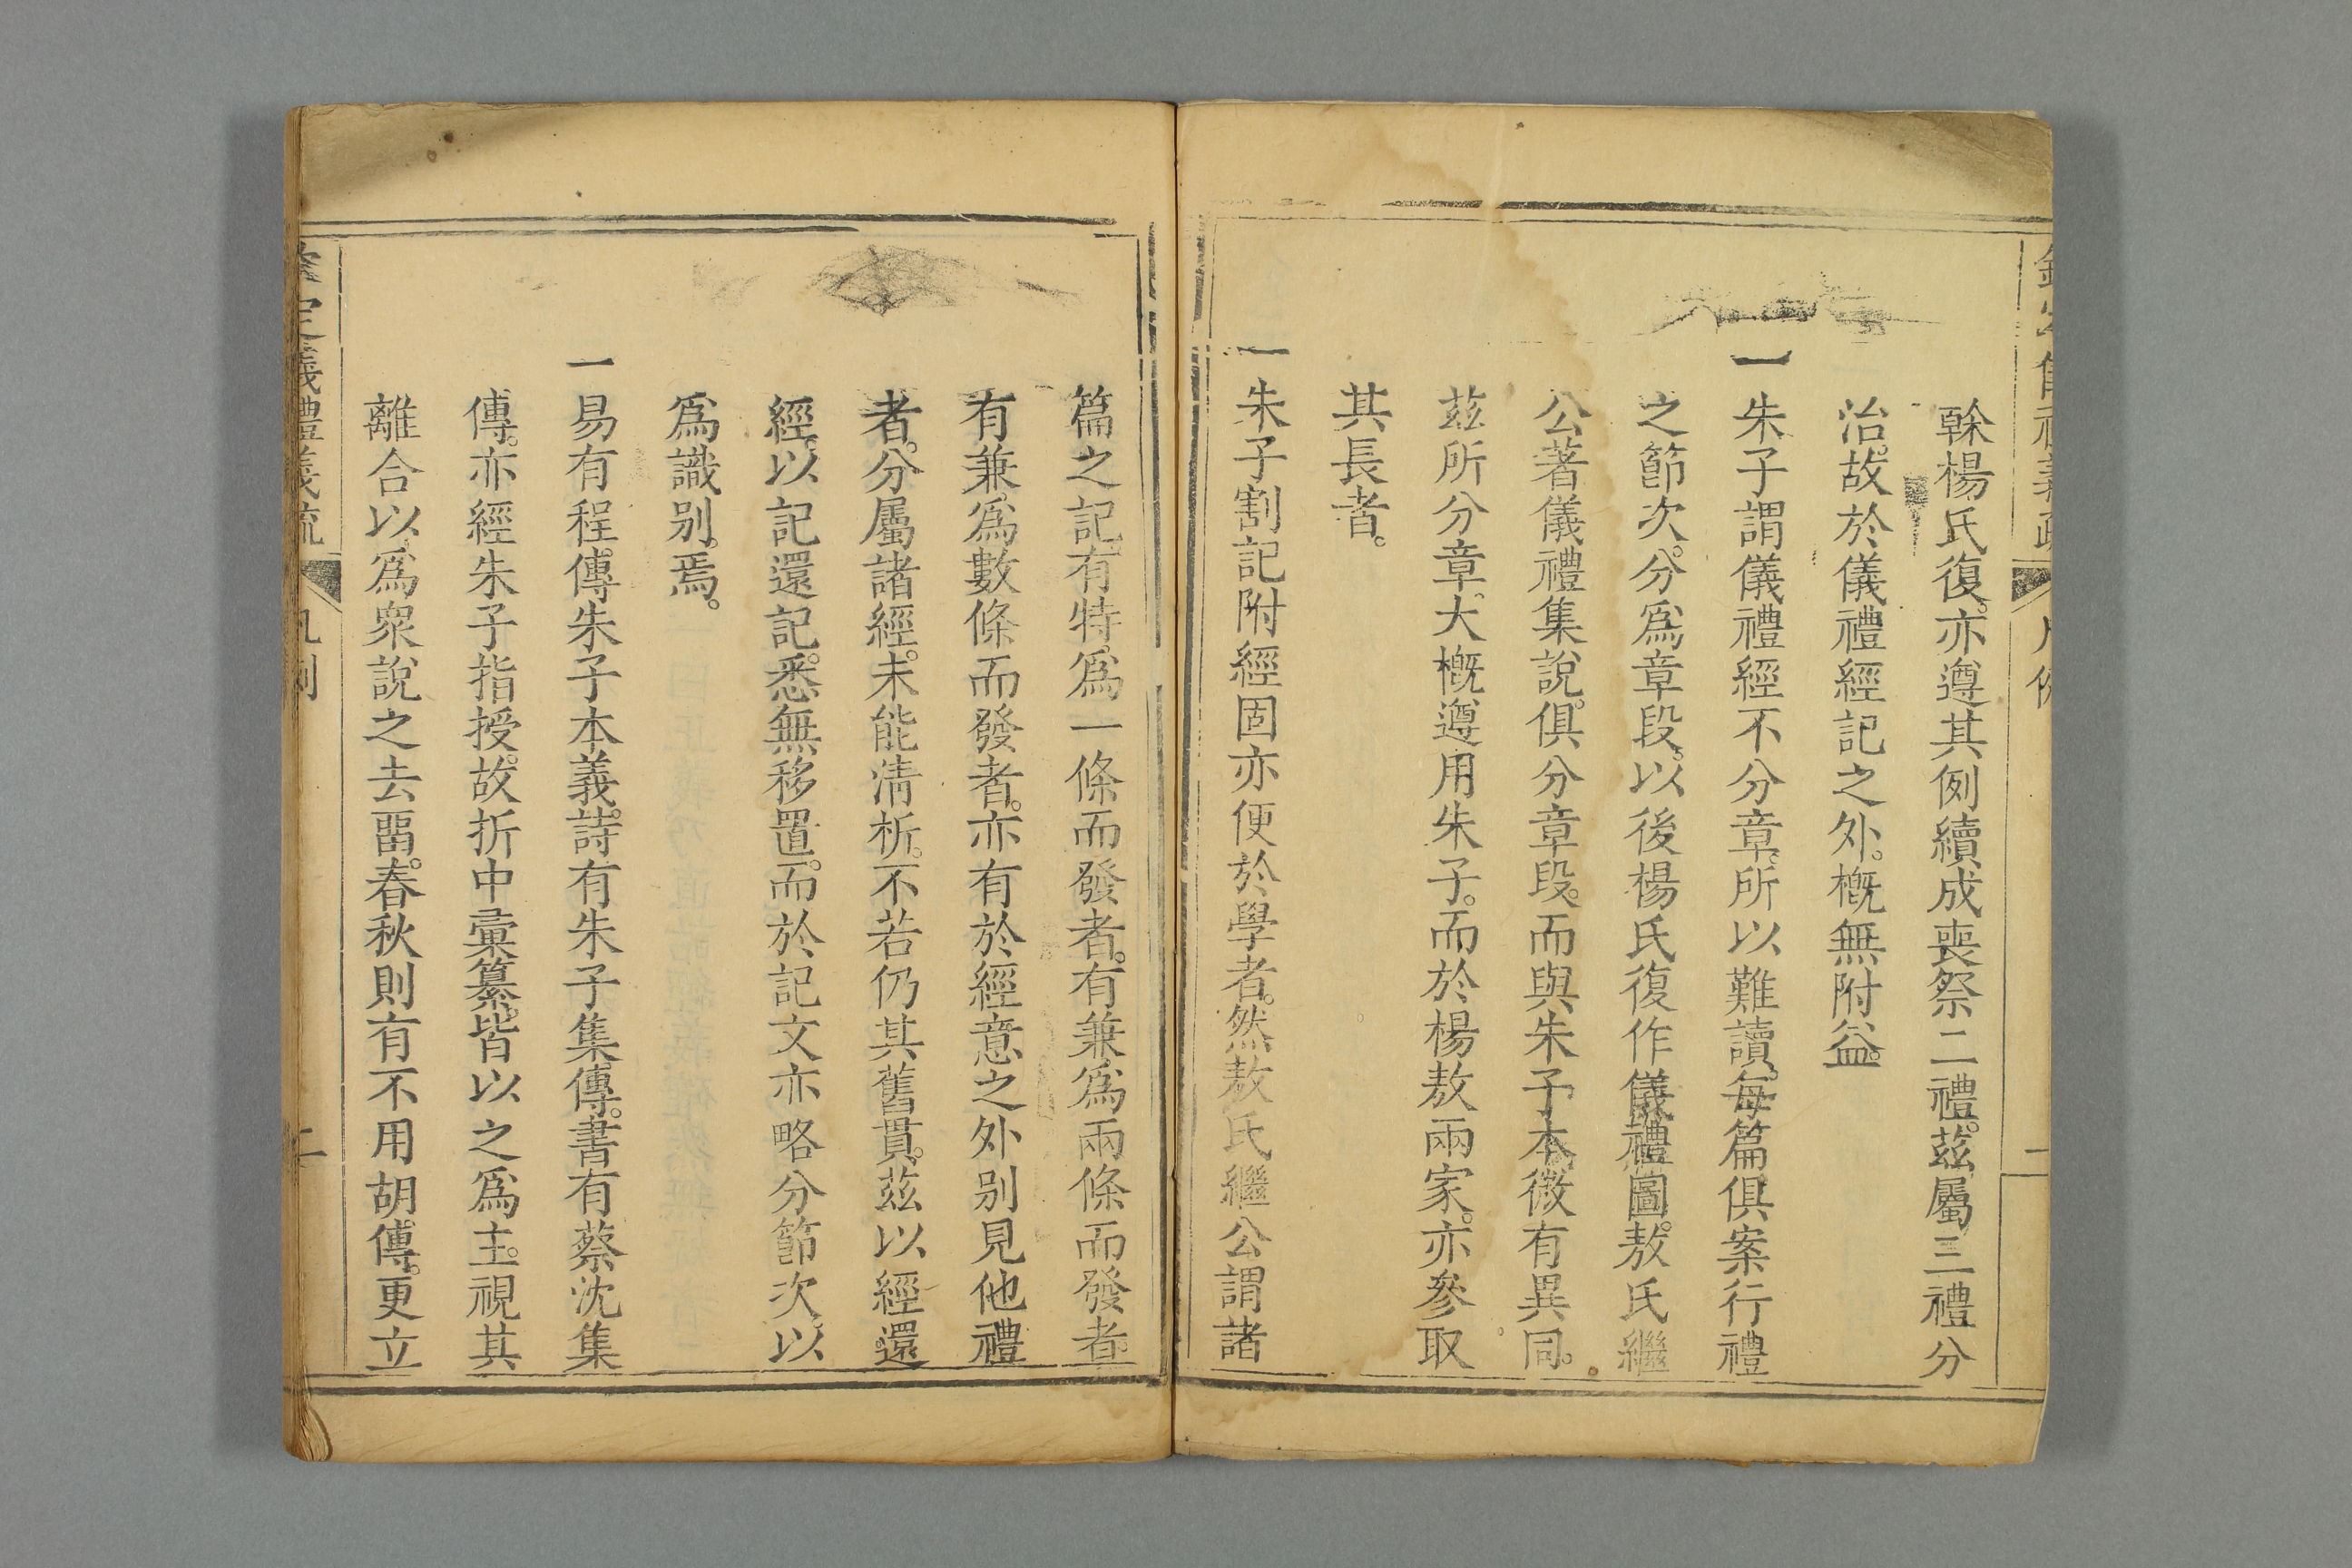 幹楊氏復亦遵其例續成喪祭二禮茲屬三禮分
治故於儀禮經記之外。概無附益。
一朱子謂儀禮經不分章。所以難讀。每篇俱案行禮
之節次。分爲章段。以後楊氏復作儀禮圖。敖氏繼
公著儀禮集說。俱分章段。而與朱子本微有異同。
茲所分章。大概遵用朱子。而於楊敖兩家。亦參取
其長者。
一朱子割記附經固亦便於學者。然敖氏繼公謂諸
篇之記。有特爲一條而發者。有兼爲兩條而發者。
有兼爲數條而發者。亦有於經意之外別見他禮
者。分屬諸經。未能清析。不若仍其舊貫。茲以經還
經。以記還記。悉無移置。而於記文亦略分節次。以
爲識別焉。
一易有程傳朱子本義。詩有朱子集傳。書有蔡沈集
傳。亦經朱子指授。故折中彙纂。皆以之爲主。視其
離合以爲衆說之去畱。春秋則有不用胡傳。更立
欽定儀禮義疏 凡例 二